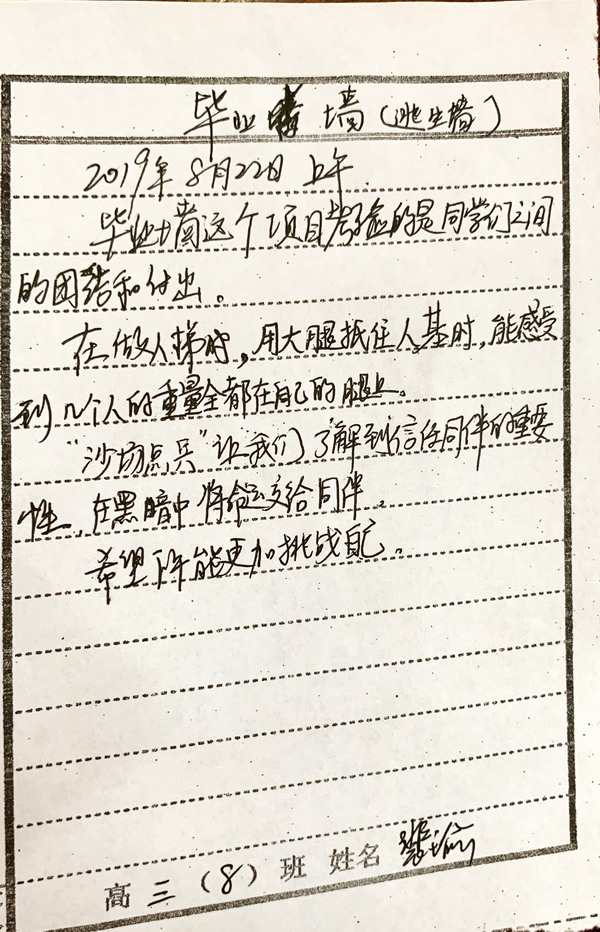 毕业墙(逃生墙)
2019年8月22日 上午
毕业墙这个项目考验的是同学们之间
的团结和付出。
在做人梯时,用大腿抵住人基时,能感受
到几个人的重量全都在自己的腿上。
"沙场点兵"让我们了解到信任同伴的重要
性,在黑暗中将命运交给同伴。
希望下午能更加挑战自己。
高三(8)班 姓名